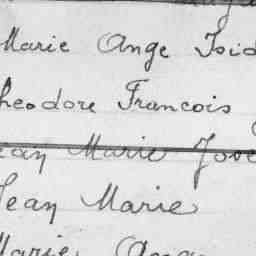 Marie Ange Isid
heodore Francois
ean Marie Jose
Jean Marie
Marie Ange